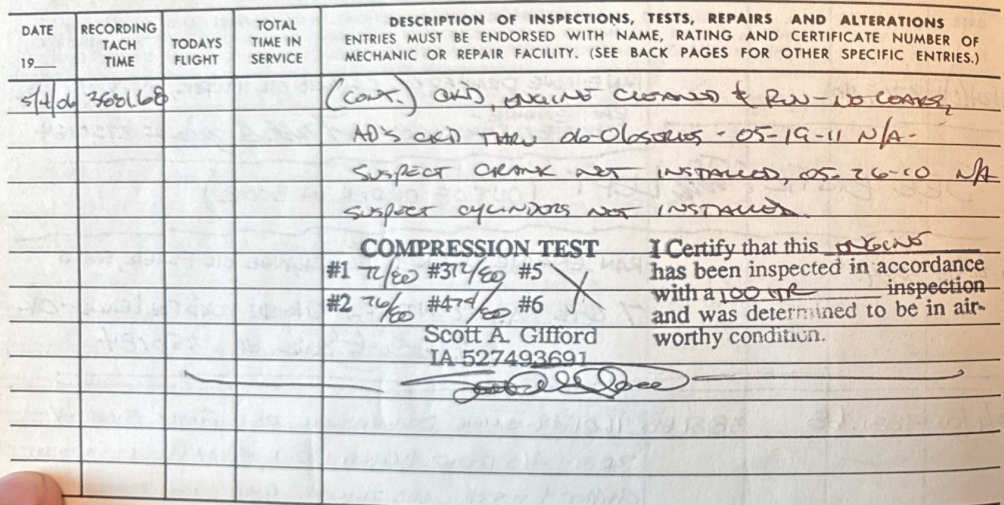 DATE
19__
RECORDING
TACH
TIME
TODAYS
FLIGHT
TOTAL
TIME IN
SERVICE
DESCRIPTION OF INSPECTIONS, TESTS, REPAIRS AND ALTERATIONS
ENTRIES MUST BE ENDORSED WITH NAME, RATING AND CERTIFICATE NUMBER OF
MECHANIC OR REPAIR FACILITY. (SEE BACK PAGES FOR OTHER SPECIFIC ENTRIES.)
5/4/06 (CONT.) CKD, ENGINE CLEANED & RUN - NO LEAKS,
AD'S CKD THRU 06-06 - 05-19-11 N/A -
SUSPECT CRANK NOT INSTALLED, 05-26-10 N/A
SUSPECT CYLINDERS NOT INSTALLED.
COMPRESSION TEST
#1 72/80 #3 72/80 #5
#2 76/80 #4 74/80 #6
Scott A. Gifford
IA 527493691
I Certify that this ENGINE
has been inspected in accordance
with a 100 HR inspection
and was determined to be in air-
worthy condition.